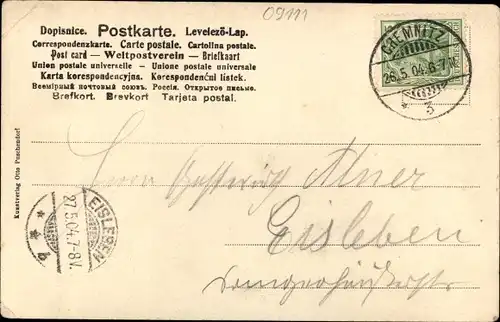 09111
Dopisnice. Postkarte. Levelező-Lap.
Correspondenzkarte. Carte postale. Cartolina postale.
Post card — Weltpostverein — Briefkaart
Union postale universelle — Unione postale universale
Karta korespondencyjna. Korespondenčni listek.
Всемірный почтовый союзъ. Россія. Открытое письмо.
Brefkort. Brevkort. Tarjeta postal.
CHEMNITZ
26.5.04. 6-7.N.
* 3
Kunstverlag Otto Puschendorf
Herrn
Eisleben
EISLEBEN
27.5.04. 7-8V.
* * b